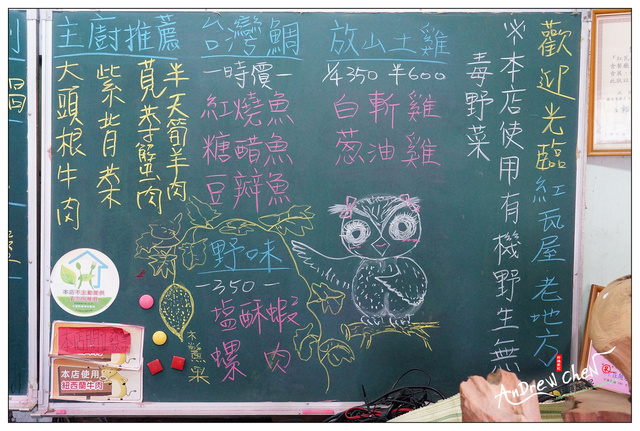 歡迎光臨紅瓦屋老地方
※本店使用有機野生無
毒野菜
放山土雞
¼350 半600
白斬雞
蔥油雞
台灣鯛
-時價-
紅燒魚
糖醋魚
豆瓣魚
主廚推薦
半天筍羊肉
莧菜蟹肉
紫背菜
大頭根牛肉
野味
-350-
塩酥蝦
螺肉
木鱉果
本店使用
紐西蘭牛肉
AnDrew CheN